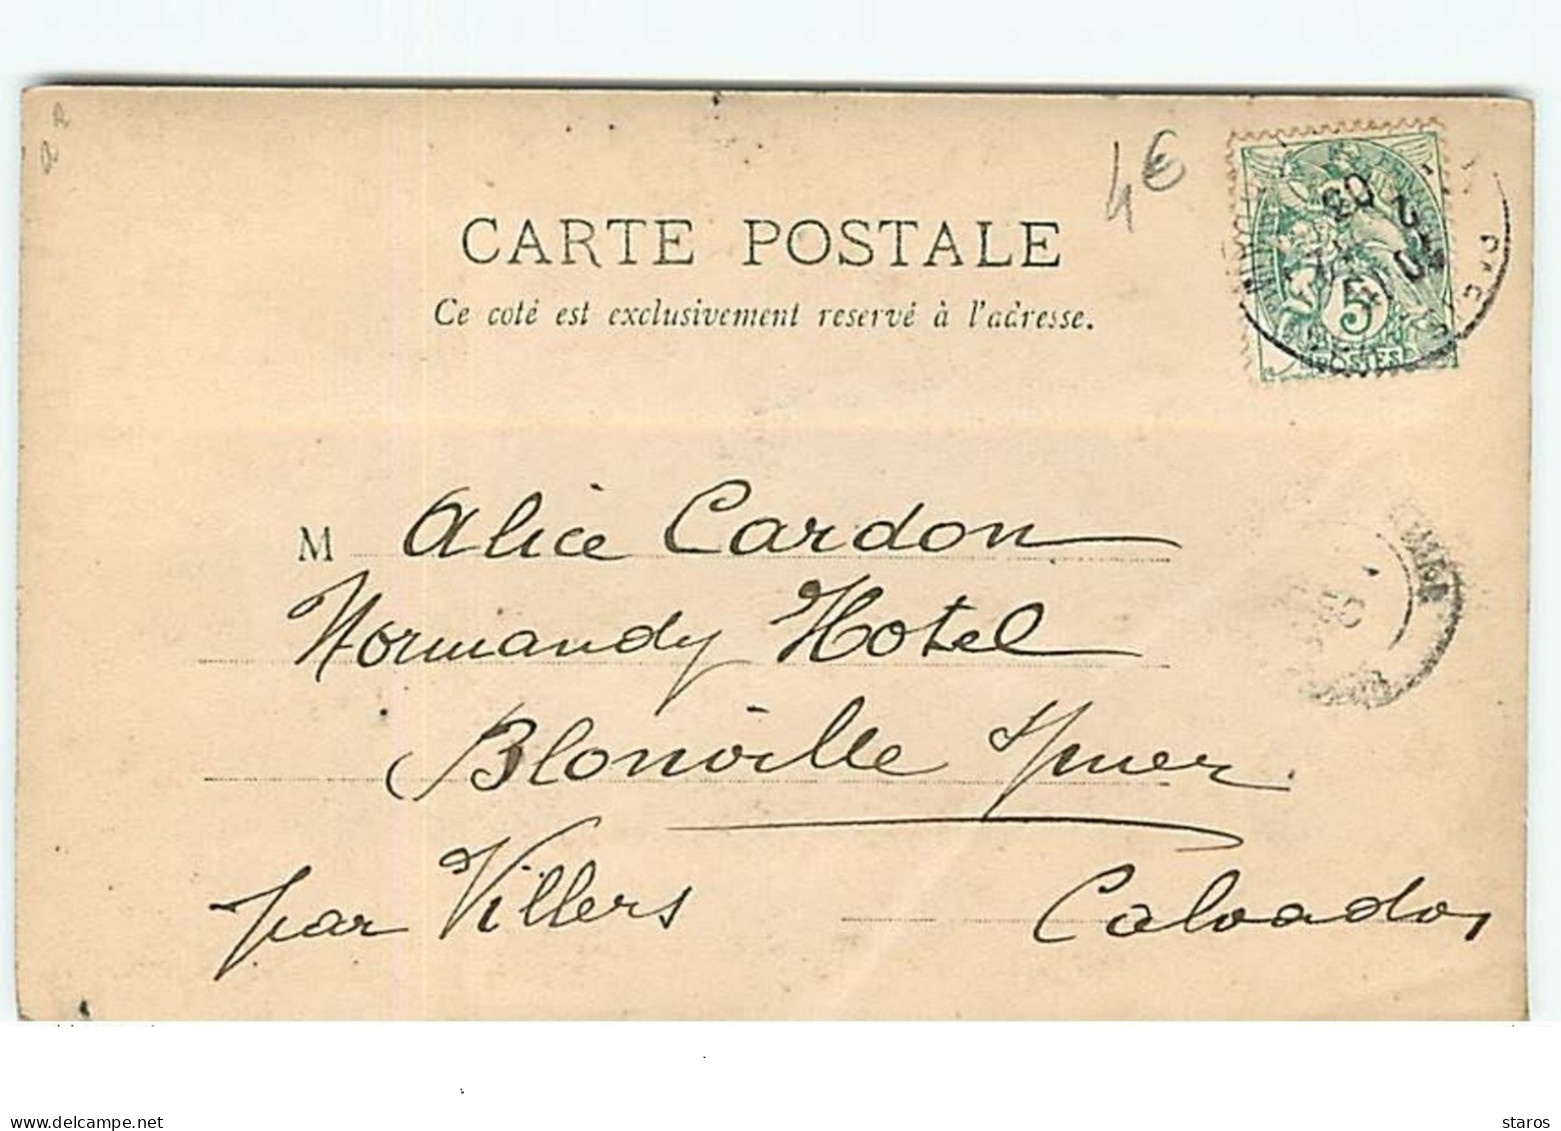 4€
CARTE POSTALE
Ce coté est exclusivement reservé à l'adresse.
5
POSTES
M Alice Cardon
Normandy Hotel
Blonville s/mer
par Villers Calvados
www.delcampe.net
staros